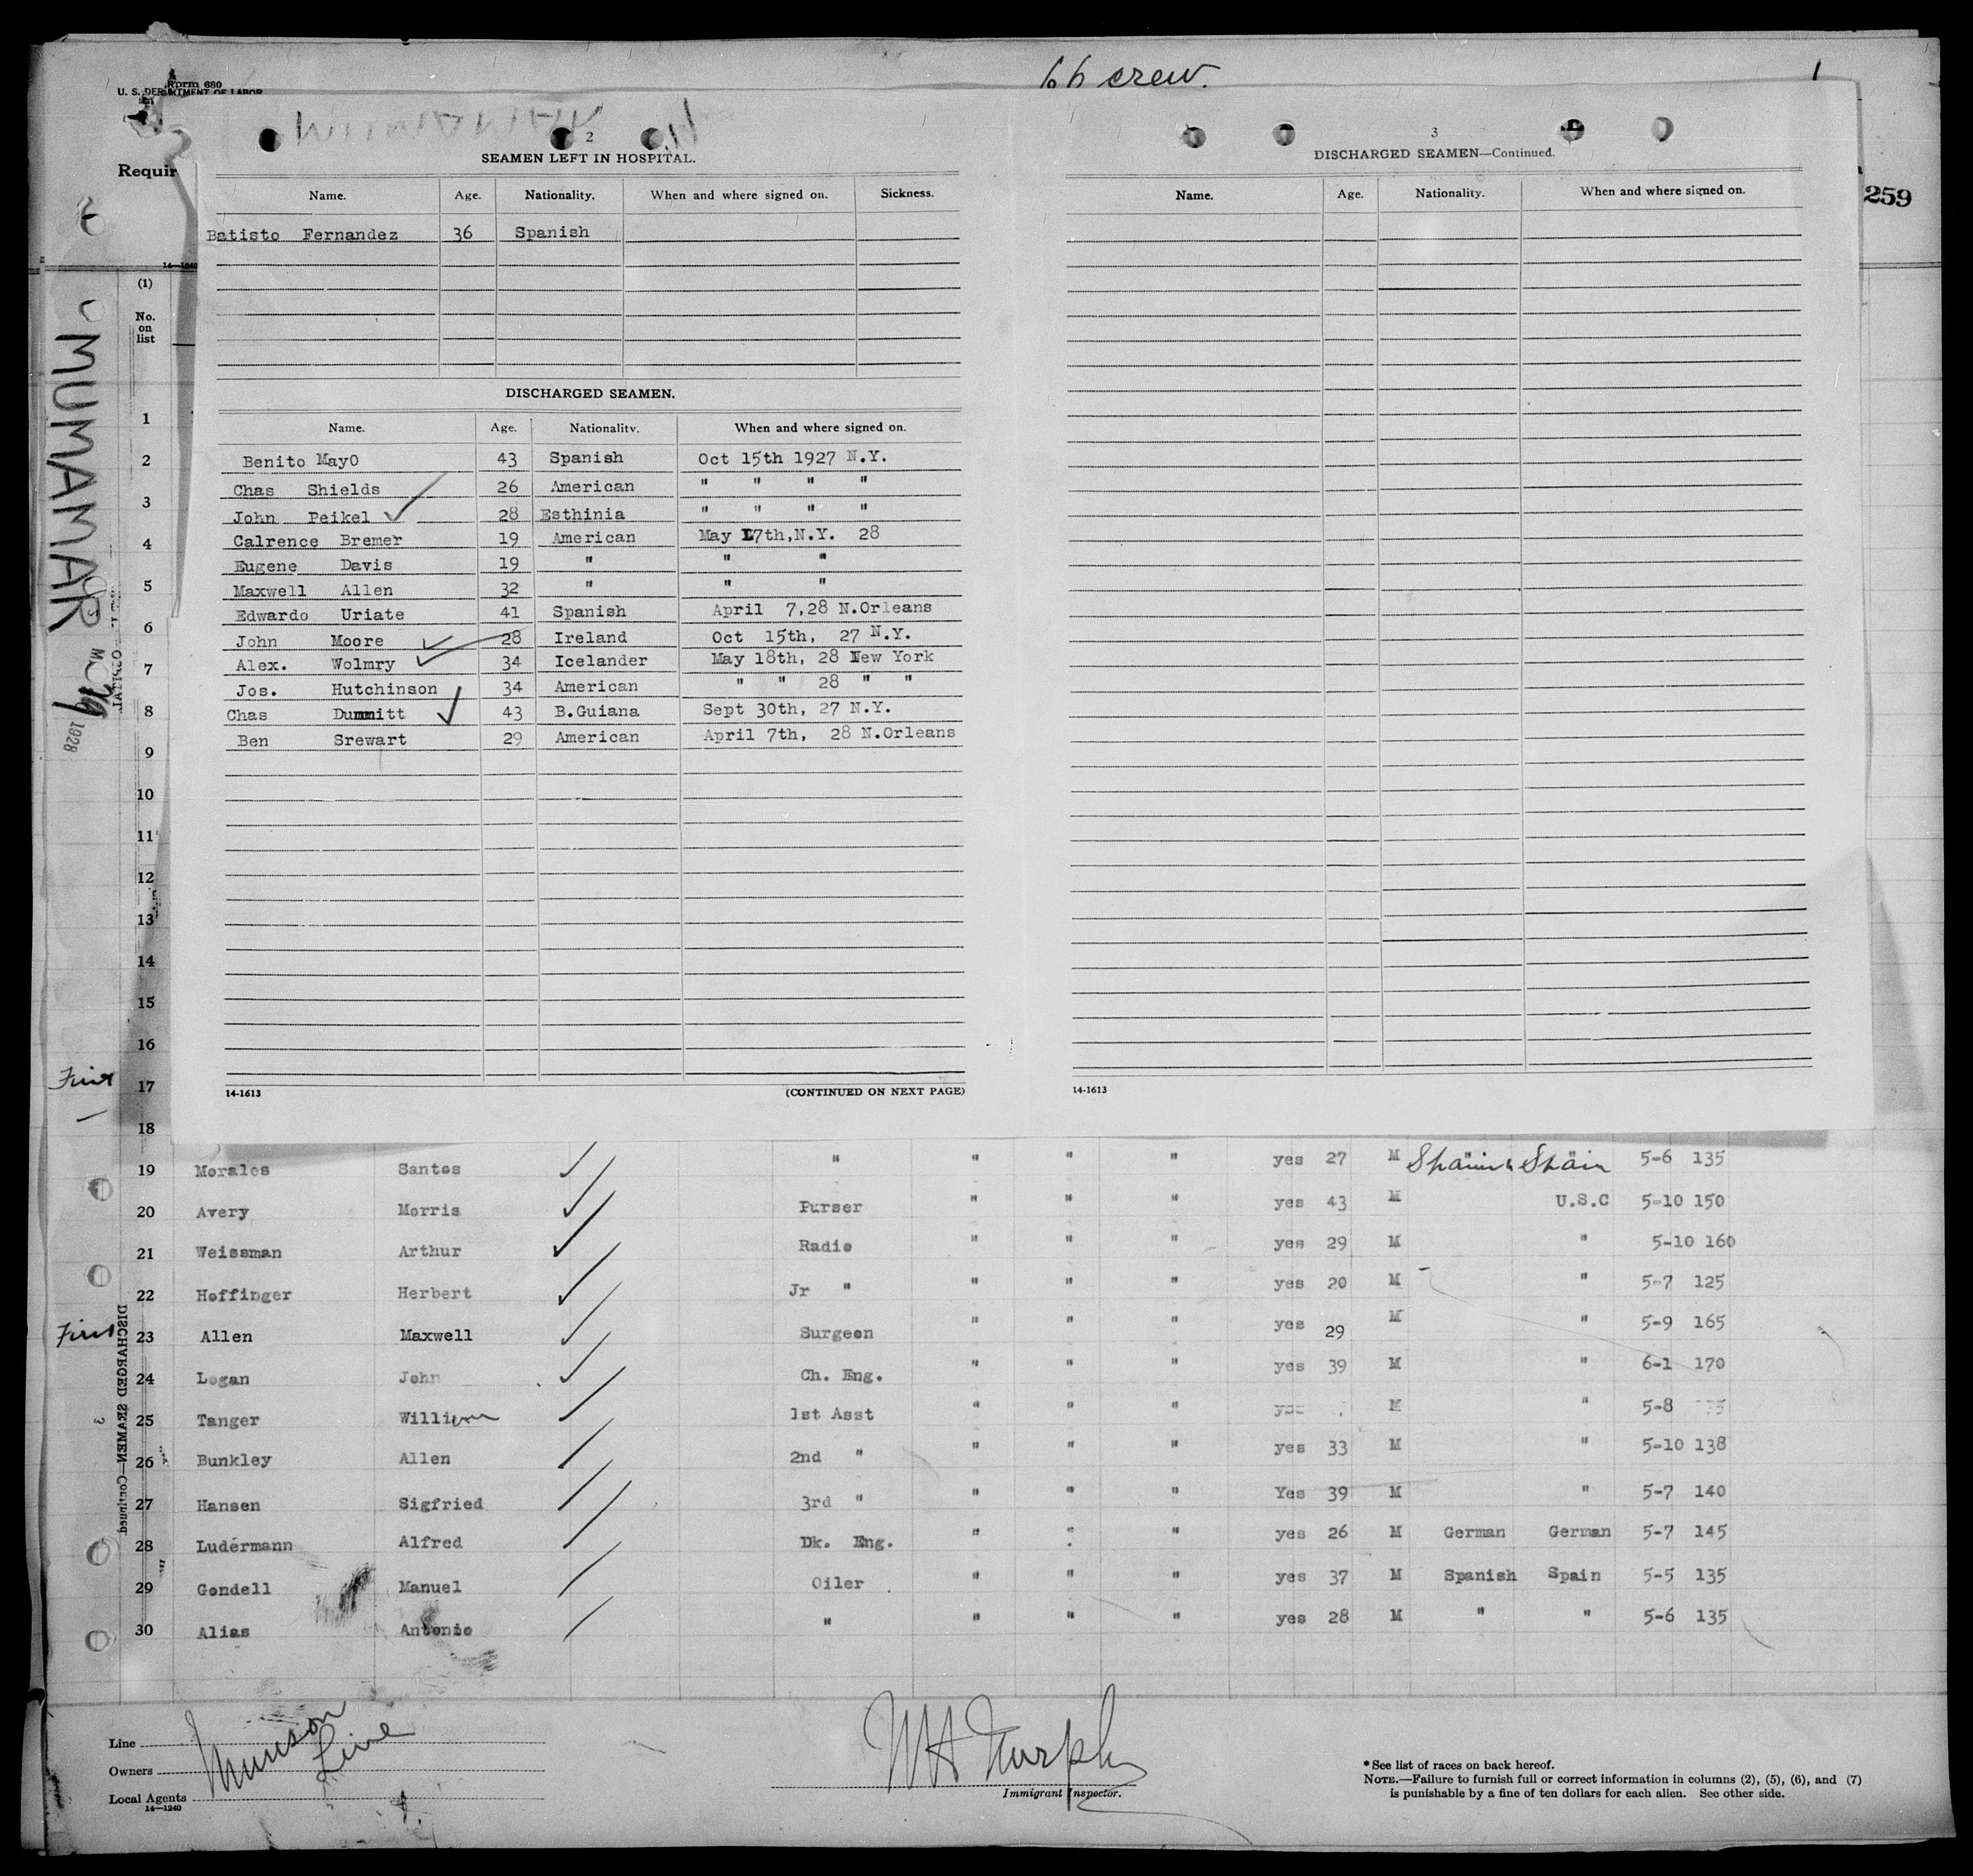 Form 680
U. S. DEPARTMENT OF LABOR
66 crew.
1
Requir
259
MUMAMAR
1928
2
SEAMEN LEFT IN HOSPITAL.
Name. Age. Nationality. When and where signed on. Sickness.
Batisto Fernandez 36 Spanish
DISCHARGED SEAMEN.
Name. Age. Nationality. When and where signed on.
Benito MayO 43 Spanish Oct 15th 1927 N.Y.
Chas Shields 26 American " " " "
John Peikel 28 Esthinia " " " "
Calrence Bremer 19 American May 17th,N.Y. 28
Eugene Davis 19 " " "
Maxwell Allen 32 " " "
Edwardo Uriate 41 Spanish April 7,28 N.Orleans
John Moore 28 Ireland Oct 15th, 27 N.Y.
Alex. Wolmry 34 Icelander May 18th, 28 New York
Jos. Hutchinson 34 American " " 28 " "
Chas Dummitt 43 B.Guiana Sept 30th, 27 N.Y.
Ben Srewart 29 American April 7th, 28 N.Orleans
14-1613 (CONTINUED ON NEXT PAGE)
3
DISCHARGED SEAMEN—Continued.
Name. Age. Nationality. When and where signed on.
14-1613
(1)
No.
on
list
1
2
3
4
5
6
7
8
9
10
11
12
13
14
15
16
17
18
First
19 Morales Santos " " " " yes 27 M Spanish Spain 5-6 135
20 Avery Morris Purser " " " yes 43 M U.S.C 5-10 150
21 Weissman Arthur Radio " " " yes 29 M " 5-10 160
22 Hoffinger Herbert Jr " " " " yes 20 M " 5-7 125
First 23 Allen Maxwell Surgeon " " " yes 29 M " 5-9 165
24 Logan John Ch. Eng. " " " yes 39 M " 6-1 170
25 Tanger William 1st Asst " " " yes M " 5-8
26 Bunkley Allen 2nd " " " " yes 33 M " 5-10 138
27 Hansen Sigfried 3rd " " " " Yes 39 M " 5-7 140
28 Ludermann Alfred Dk. Eng. " " " yes 26 M German German 5-7 145
29 Gondell Manuel Oiler " " " yes 37 M Spanish Spain 5-5 135
30 Alias Antonio " " " " yes 28 M " " 5-6 135
DISCHARGED SEAMEN—Continued
3
Line
Owners
Local Agents
14—1240
Munson
Line
W H Murphy
Immigrant Inspector.
* See list of races on back hereof.
NOTE.—Failure to furnish full or correct information in columns (2), (5), (6), and (7)
is punishable by a fine of ten dollars for each alien. See other side.